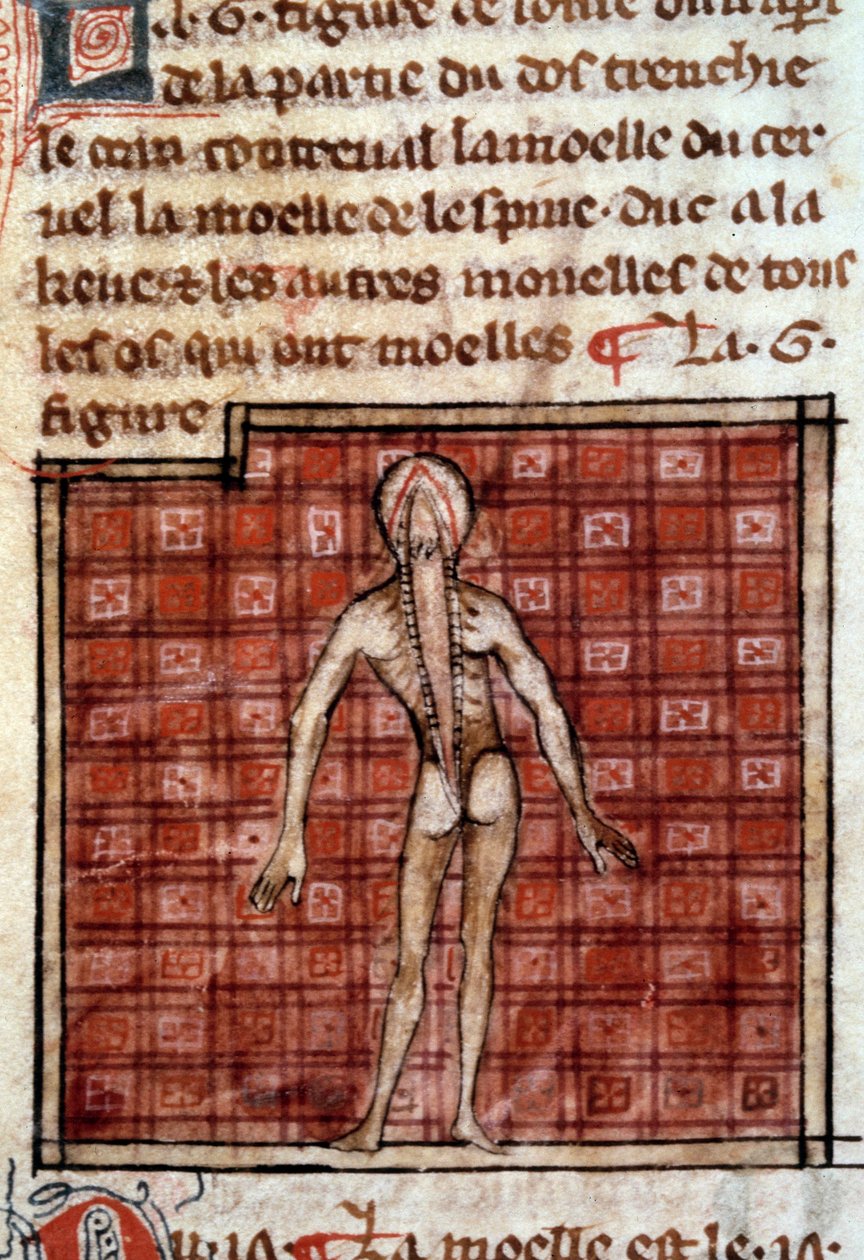 .l. G. figure de lome dun apt
de la partie du dos trenchie
le crin contreual la moelle du cer
uel la moelle de lespine. duc a la
keue. ⁊ les autres mouelles de tous
les os qui ont moelles ¶ La. G.
figure
¶ La moelle est le. ia.